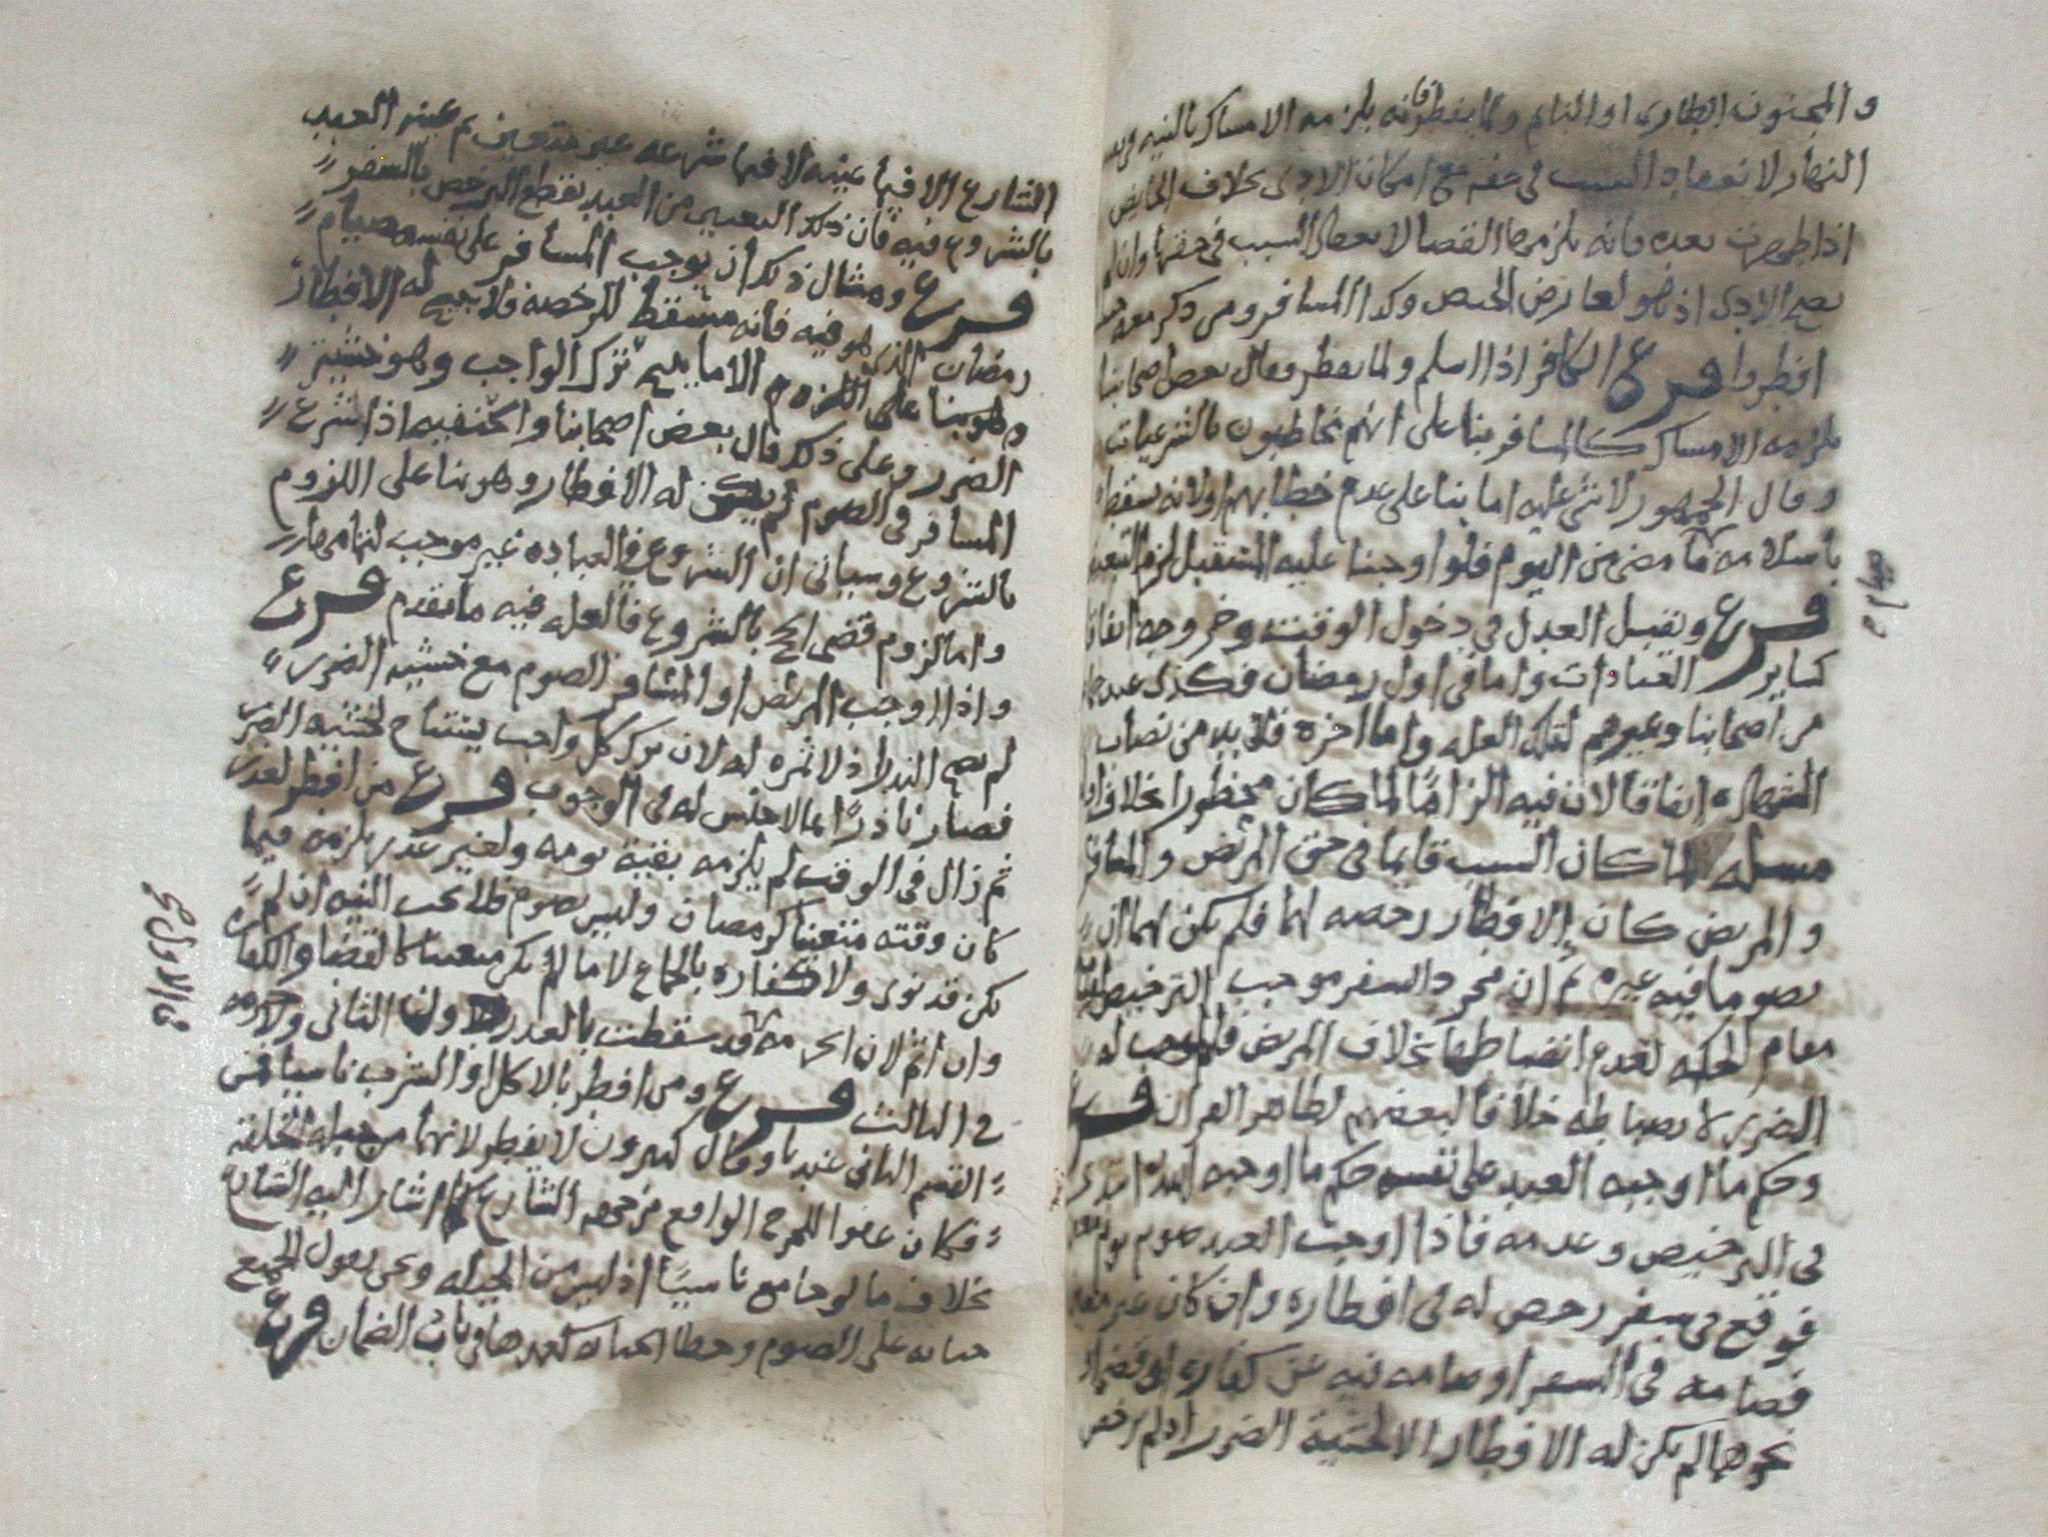 و المجنون الطاري او النايم ولما يفطر فانه يلزمه الامساك بالنيه وبعض
النهار لانعقاد السبب في حقهم مع امكان الادى بخلاف الحايض
اذا طهرت بعده فانه يلزمها القضا لانعقاد السبب في حقها وان لم
يصح الادى اذ هو لعارض الحيض وكذا المسافر ومن ذكر معه
افطروا فرع الكافر اذا اسلم ولما يفطر وقال بعض اصحابنا
يلزمه الامساك كالمسافر بنا على انهم مخاطبون بالشرعيات
وقال الجمهور لا شي عليه اما بنا على عدم خطابهم او لانه يسقط
باسلامه ما مضى من اليوم فلو اوجبنا عليه المستقبل لزم
فرع ويقبل العدل في دخول الوقت وخروجه اتفاقا
كساير العبادات واما في اول رمضان فكذلك عند
من اصحابنا وغيرهم لتلك العله واما اخره فلا بد من نصاب
الشهاده اتفاقا لان فيه الزاما لما كان محظورا بخلاف
مسله لما كان السبب قايما في حق المريض والمسافر
والمريض كان الافطار رخصه لهما فلم يكن لهما ان
يصوما فيه غيره ثم ان مجرد السفر موجب الترخيص
مقام الحكمه لعدم انضباطها بخلاف المريض فالموجب له
الضرر لانضباطه خلافا لبعضهم لظاهر القران فرع
وحكم ما اوجبه العبد على نفسه حكم ما اوجبه الله ابتدى
في الترخيص وعدمه فاذا اوجب العبد صوم يوم
فوقع في سفر رخص له في افطاره وان كان غير
فصامه في السفر او صامه فيه عن كفاره او قضا او
نحوهما لم يكن له الافطار الا لخشية الضرر اذ لم يرخص
الشارع الا فيما عينه لا فيما شرعه غير متعين ثم عينه العبد
بالشروع فيه فان ذلك التعيين من العبد يقطع الترخص بالسفر
فرع ومثال ذلك ان يوجب المسافر على نفسه صيام
رمضان الذي هو فيه فانه مسقط للرخصه فلا يبيح له الافطار
وهو بنا على اللزوم الا ما يبيح ترك الواجب وهو خشية
الضرر وعلى ذلك قال بعض اصحابنا والحنفيه اذا شرع
المسافر في الصوم لم يكن له الافطار وهو بنا على اللزوم
بالشروع وسياتي ان الشروع في العباده غير موجب لتمامها
واما لزوم قضى الحج بالشروع فالعله فيه ما تقدم فرع
واذا اوجب المريض او المسافر الصوم مع خشيه الضرر
لم يصح النذر اذ لا ثمره له لان ترك كل واجب يستباح لخشيه الضرر
فصار ناذرا بما لا جنس له في الوجوب فرع من افطر لعذر
ثم زال في الوقت لم يلزمه بقية يومه ولغير عذر يلزمه فيما
كان وقته متعينا كرمضان وليس بصوم فلا تجب النيه ان لم
يكن قد نوى ولا كفاره بالجماع لا ما لم يكن متعينا كالقضا والكفارة
وان اثم لان الحرمه قد سقطت بالعذر في الاول دون الثاني ولا حرمه
في الثالث فرع ومن افطر بالاكل او الشرب ناسيا فمن
القسم الثاني عندنا وقال كثيرون لا يفطر لانهما من جملة الخلقة
فكان عفوا للحرج الواقع من جهه الشارع كما اشار اليه الشارع
بخلاف ما لو جامع ناسيا اذ ليس من الجبله ونحن نقول الجميع
جنايه على الصوم وخطا الجنايه كعمدها في باب الضمان فرع